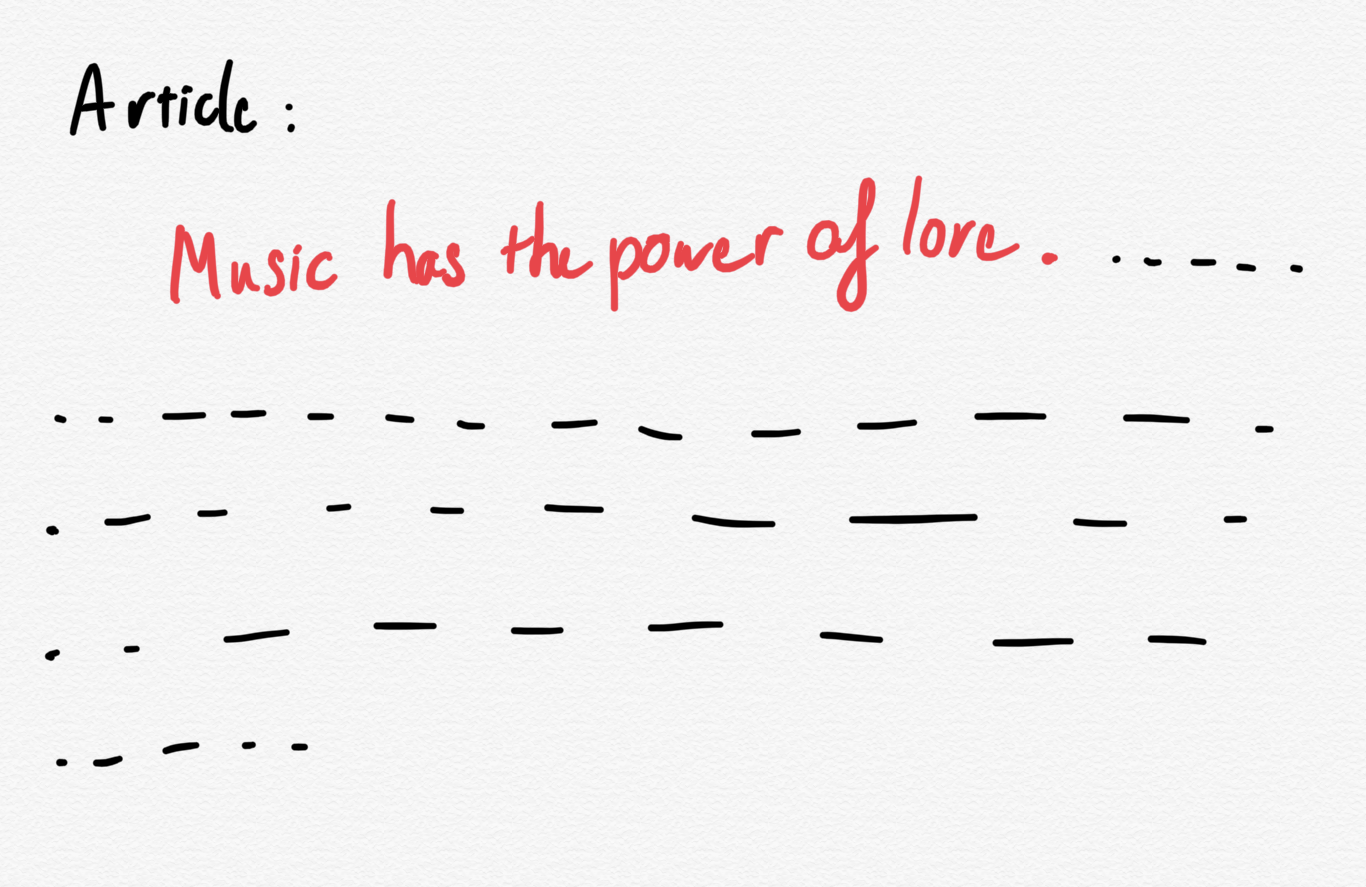 Article :
Music has the power of love.